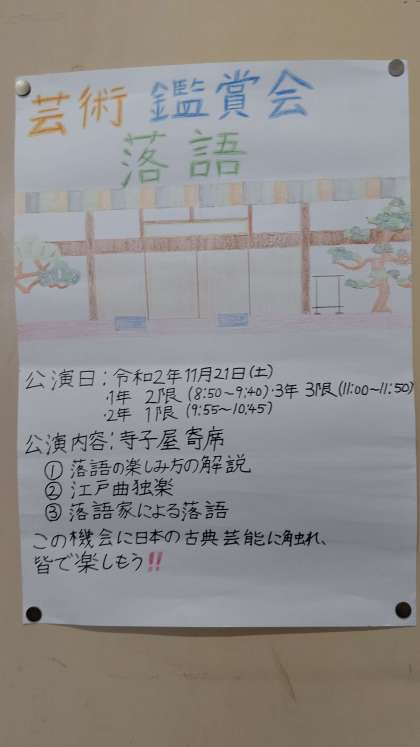 芸術 鑑賞会
落語
公演日:令和2年11月21日(土)
・1年 2限 (8:50～9:40)・3年 3限(11:00～11:50)
・2年 1限 (9:55～10:45)
公演内容:寺子屋寄席
① 落語の楽しみ方の解説
② 江戸曲独楽
③ 落語家による落語
この機会に日本の古典芸能に触れ、
皆で楽しもう!!